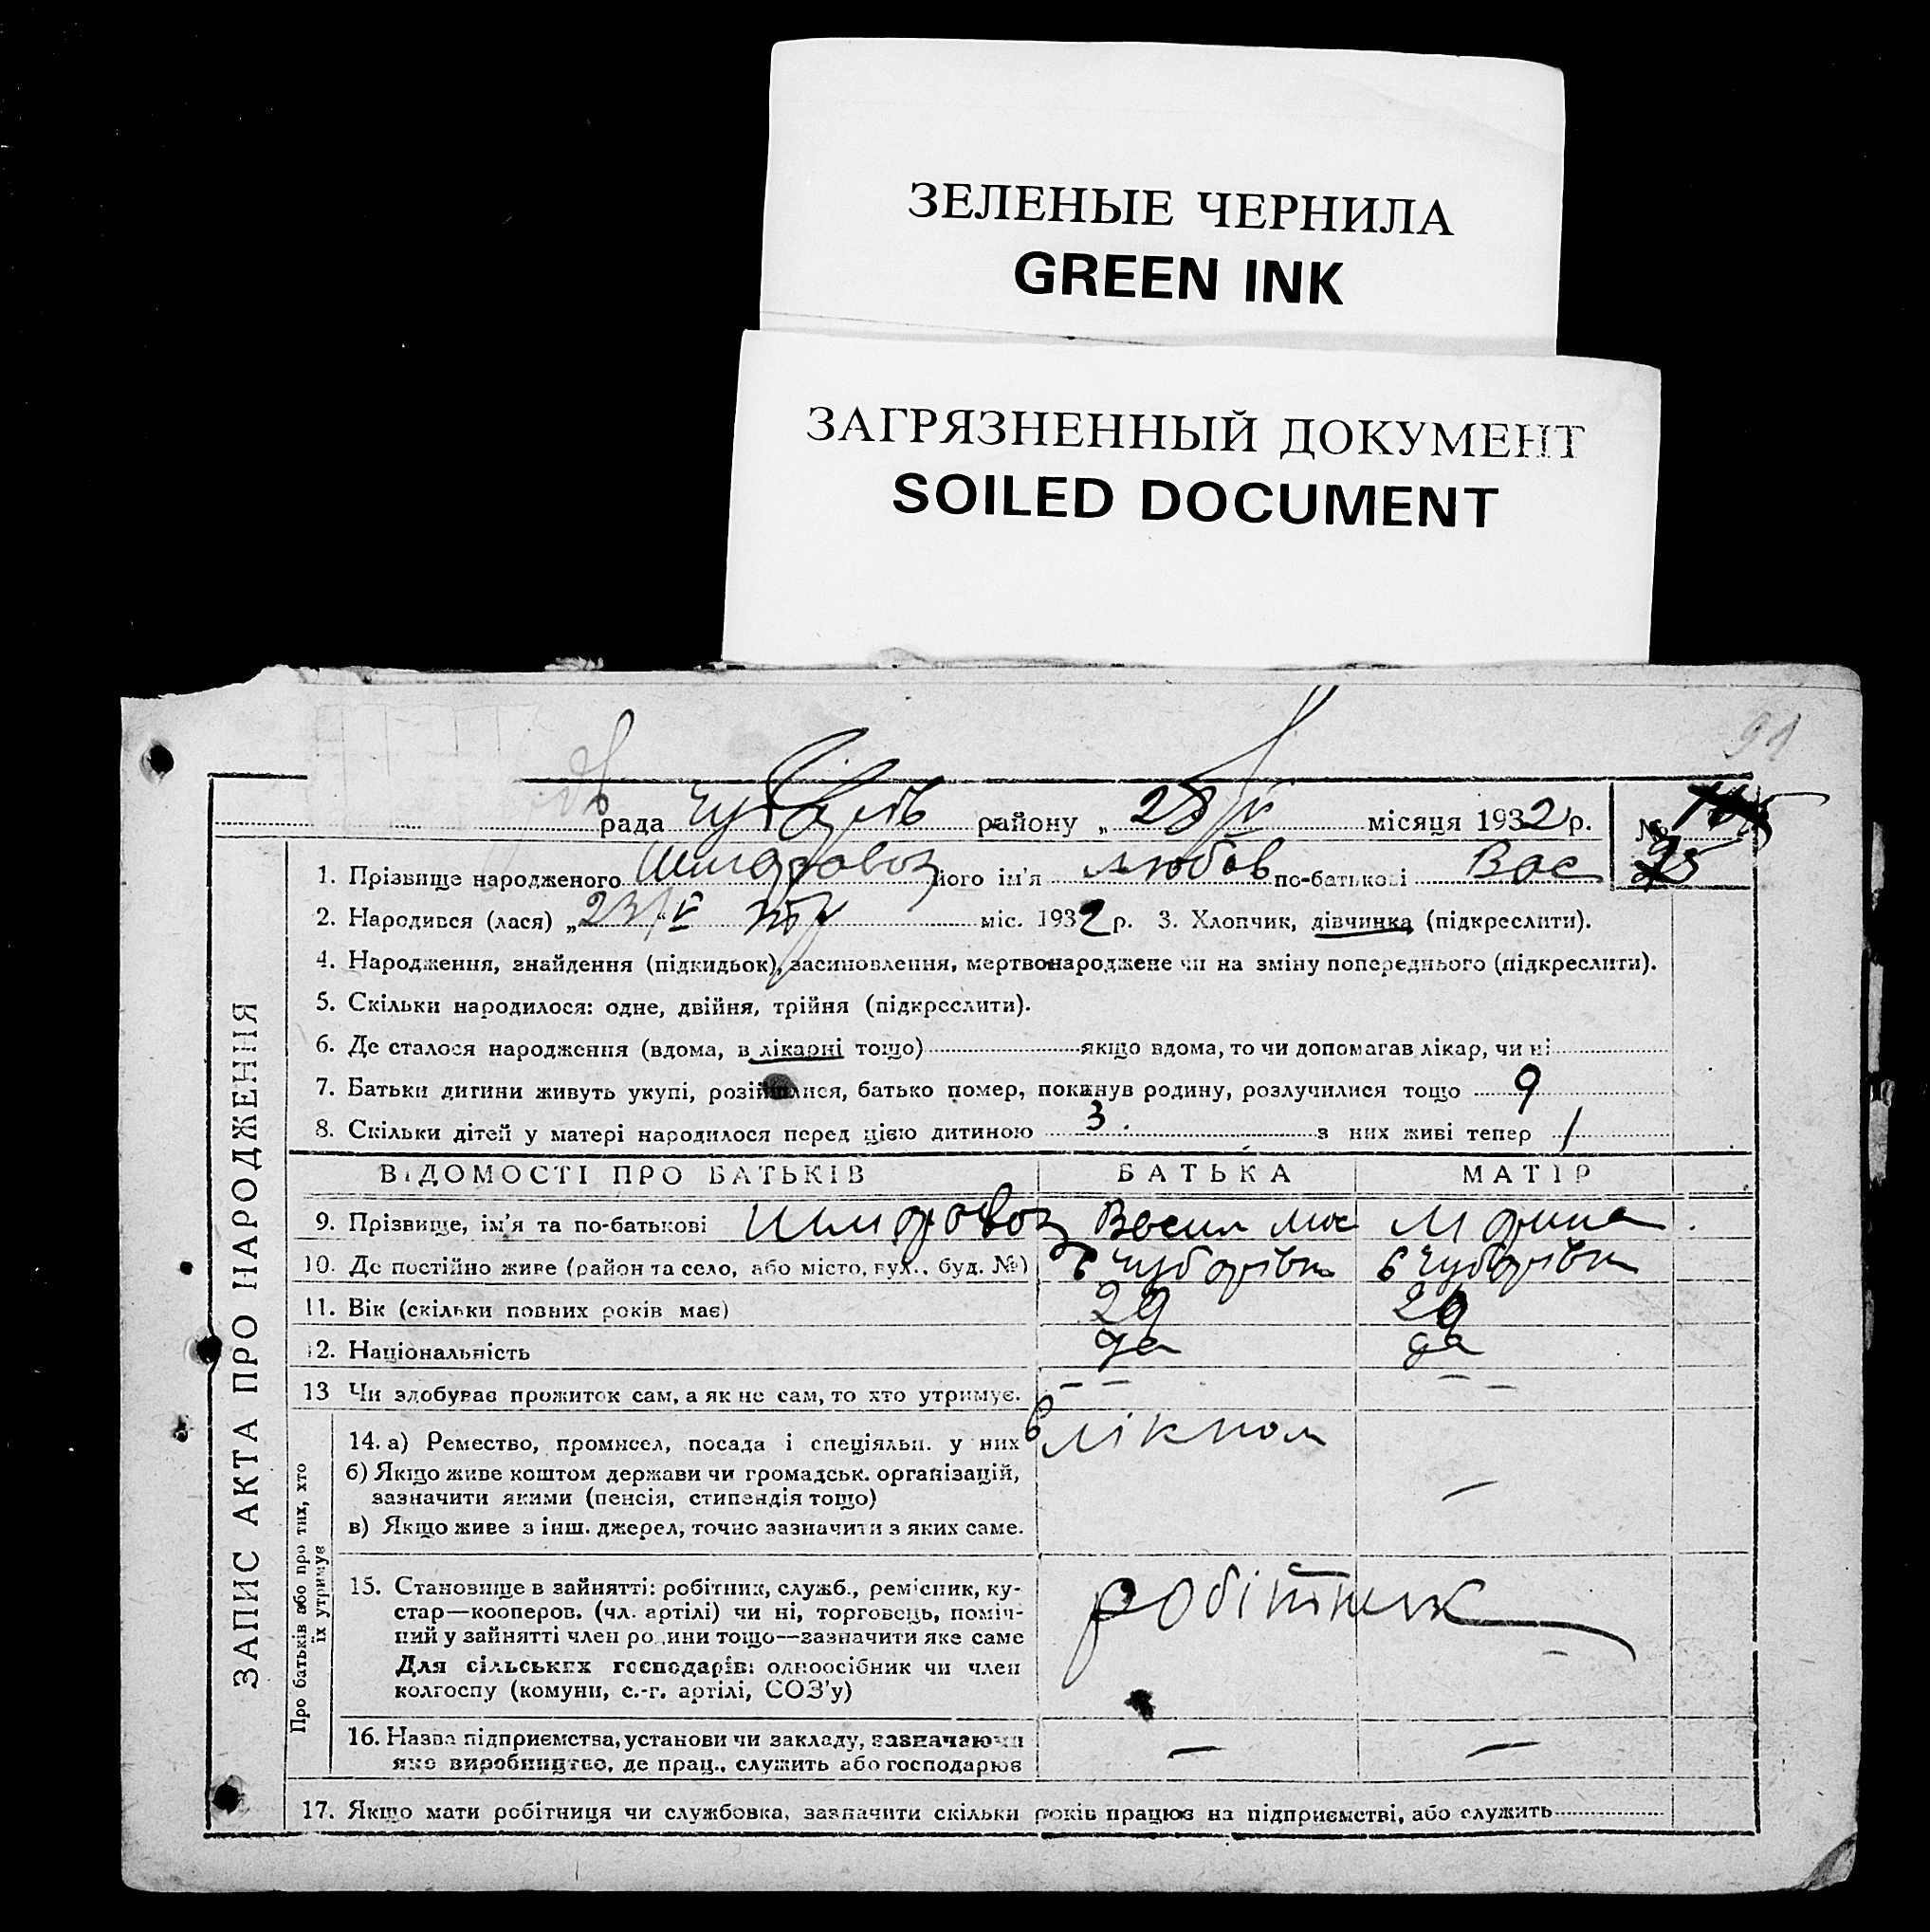 ЗЕЛЕНЫЕ ЧЕРНИЛА
GREEN INK
ЗАГРЯЗНЕННЫЙ ДОКУМЕНТ
SOILED DOCUMENT
91
рада району „ 28/IV місяця 1932 р. №
1. Прізвище народженого його ім'я Любов по-батькові Вас 25
2. Народився (лася) „23/ міс. 1932 р. 3. Хлопчик, дівчинка (підкреслити).
4. Народження, знайдення (підкидьок), засиновлення, мертвонароджене чи на зміну попереднього (підкреслити).
5. Скільки народилося: одне, двійня, трійня (підкреслити).
6. Де сталося народження (вдома, в лікарні тощо) якщо вдома, то чи допомагав лікар, чи ні
7. Батьки дитини живуть укупі, розійшлися, батько помер, покинув родину, розлучилися тощо 9
8. Скільки дітей у матері народилося перед цією дитиною 3. з них живі тепер 1
ВІДОМОСТІ ПРО БАТЬКІВ БАТЬКА МАТІР
9. Прізвище, ім'я та по-батькові Василь
10. Де постійно живе (район та село, або місто, вул., буд. №) в Чубарівка в Чубарівка
11. Вік (скільки повних років має) 29 29
12. Національність
13 Чи здобуває прожиток сам, а як не сам, то хто утримує. – – – –
14. а) Ремество, промисел, посада і спеціяльн. у них
б) Якщо живе коштом держави чи громадськ. організацій,
зазначити якими (пенсія, стипендія тощо) –
в) Якщо живе з інш. джерел, точно зазначити з яких саме.
15. Становище в зайнятті: робітник, служб., ремісник, ку-
стар—кооперов. (чл. артілі) чи ні, торговець, поміч-
ний у зайнятті член родини тощо—зазначити яке саме робітник
Для сільських господарів: одноосібник чи член
колгоспу (комуни, с.-г. артілі, СОЗ'у)
16. Назва підприємства, установи чи закладу, зазначаючи
яке виробництво, де прац., служить або господарює – –
17. Якщо мати робітниця чи службовка, зазначити скільки років працює на підприємстві, або служить
ЗАПИС АКТА ПРО НАРОДЖЕННЯ
Про батьків або про тих, хто
їх утримує